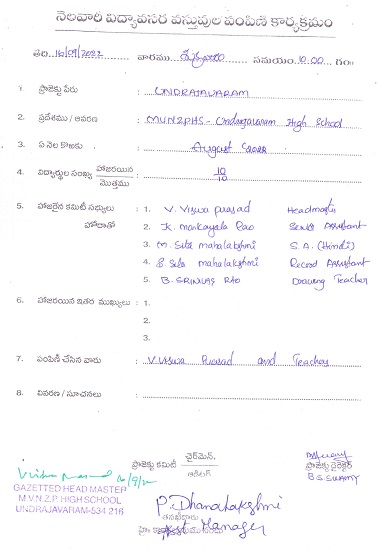 నెలవారీ విద్యావసర వస్తువుల పంపిణీ కార్యక్రమం
తేది 16/09/2022 వారము శుక్రవారం సమయం 10.00 గం
1. ప్రాజెక్టు పేరు : UNDRAJAVARAM
2. ప్రదేశము / ఆవరణ : M.V.N.Z.P.H.S - Undrajavaram High School
3. ఏ నెల కొఱకు : August 2022
4. విద్యార్థుల సంఖ్య హాజరయిన / మొత్తము : 10/10
5. హాజరైన కమిటీ సభ్యులు : 1. V. Viswa prasad Headmaster
హోదాతో 2. K. Mankayala Rao Senior Assistant
3. M. Sita mahalakshmi S.A. (Hindi)
4. B. Sita mahalakshmi Record Assistant
5. B. SRINIVAS RAO Drawing Teacher
6. హాజరయిన ఇతర ముఖ్యులు : 1.
2.
3.
7. పంపిణీ చేసిన వారు : V. Viswa Prasad and Teachers
8. వివరణ / సూచనలు :
ప్రాజెక్టు కమిటీ చైర్‌మెన్. / ఆడిటర్ ప్రాజెక్టు డైరెక్టర్
B.S. SWAMY
16/9/22
GAZETTED HEAD MASTER
M.V.N.Z.P. HIGH SCHOOL
UNDRAJAVARAM-534 216
P. Dhanalakshmi
తనిఖీదారు
Asst Manager